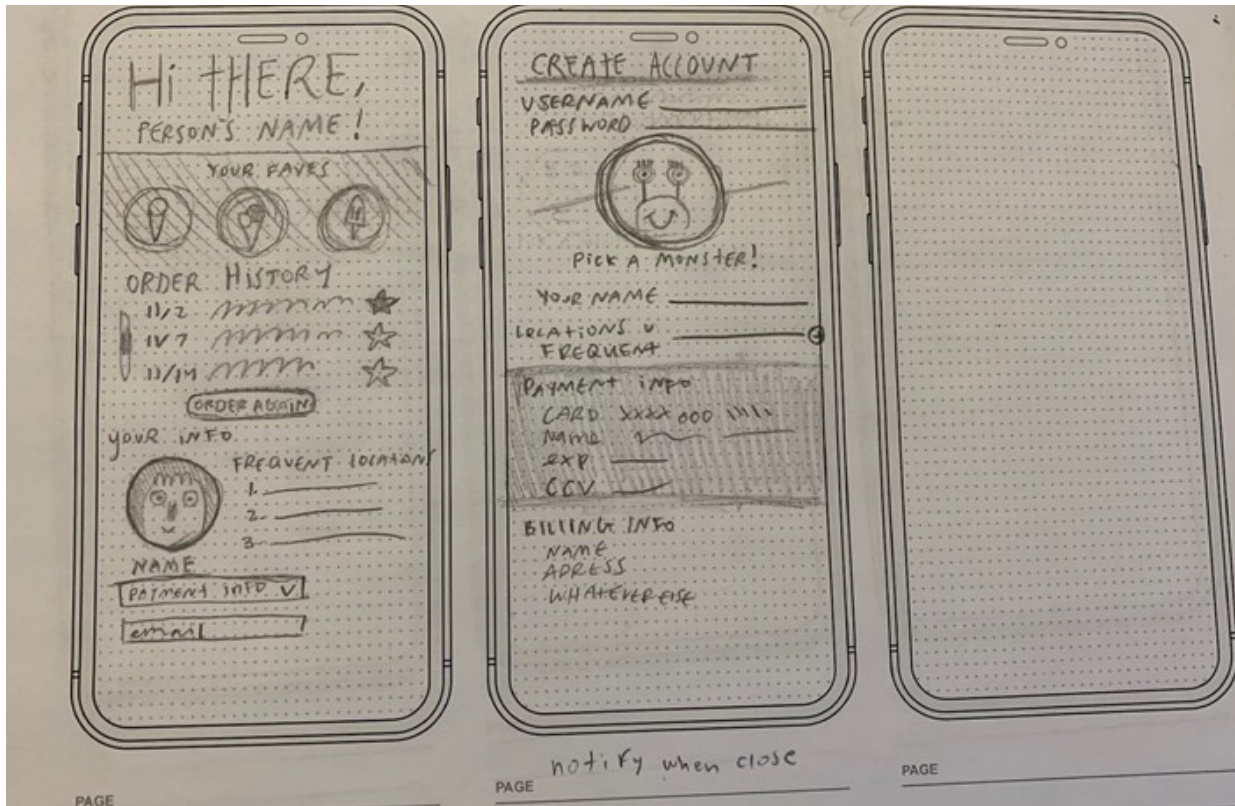 Hi THERE,
PERSON'S NAME!
YOUR FAVES
ORDER HISTORY
11/2
11/7
11/14
ORDER AGAIN
YOUR INFO
FREQUENT LOCATIONS
1.
2.
3.
NAME
PAYMENT INFO V
email
PAGE
CREATE ACCOUNT
USERNAME
PASSWORD
PICK A MONSTER!
YOUR NAME
LOCATIONS U
FREQUENT
PAYMENT INFO
CARD XXXX 000
NAME
EXP
CCV
BILLING INFO
NAME
ADRESS
WHATEVER ELSE
notify when close
PAGE
PAGE